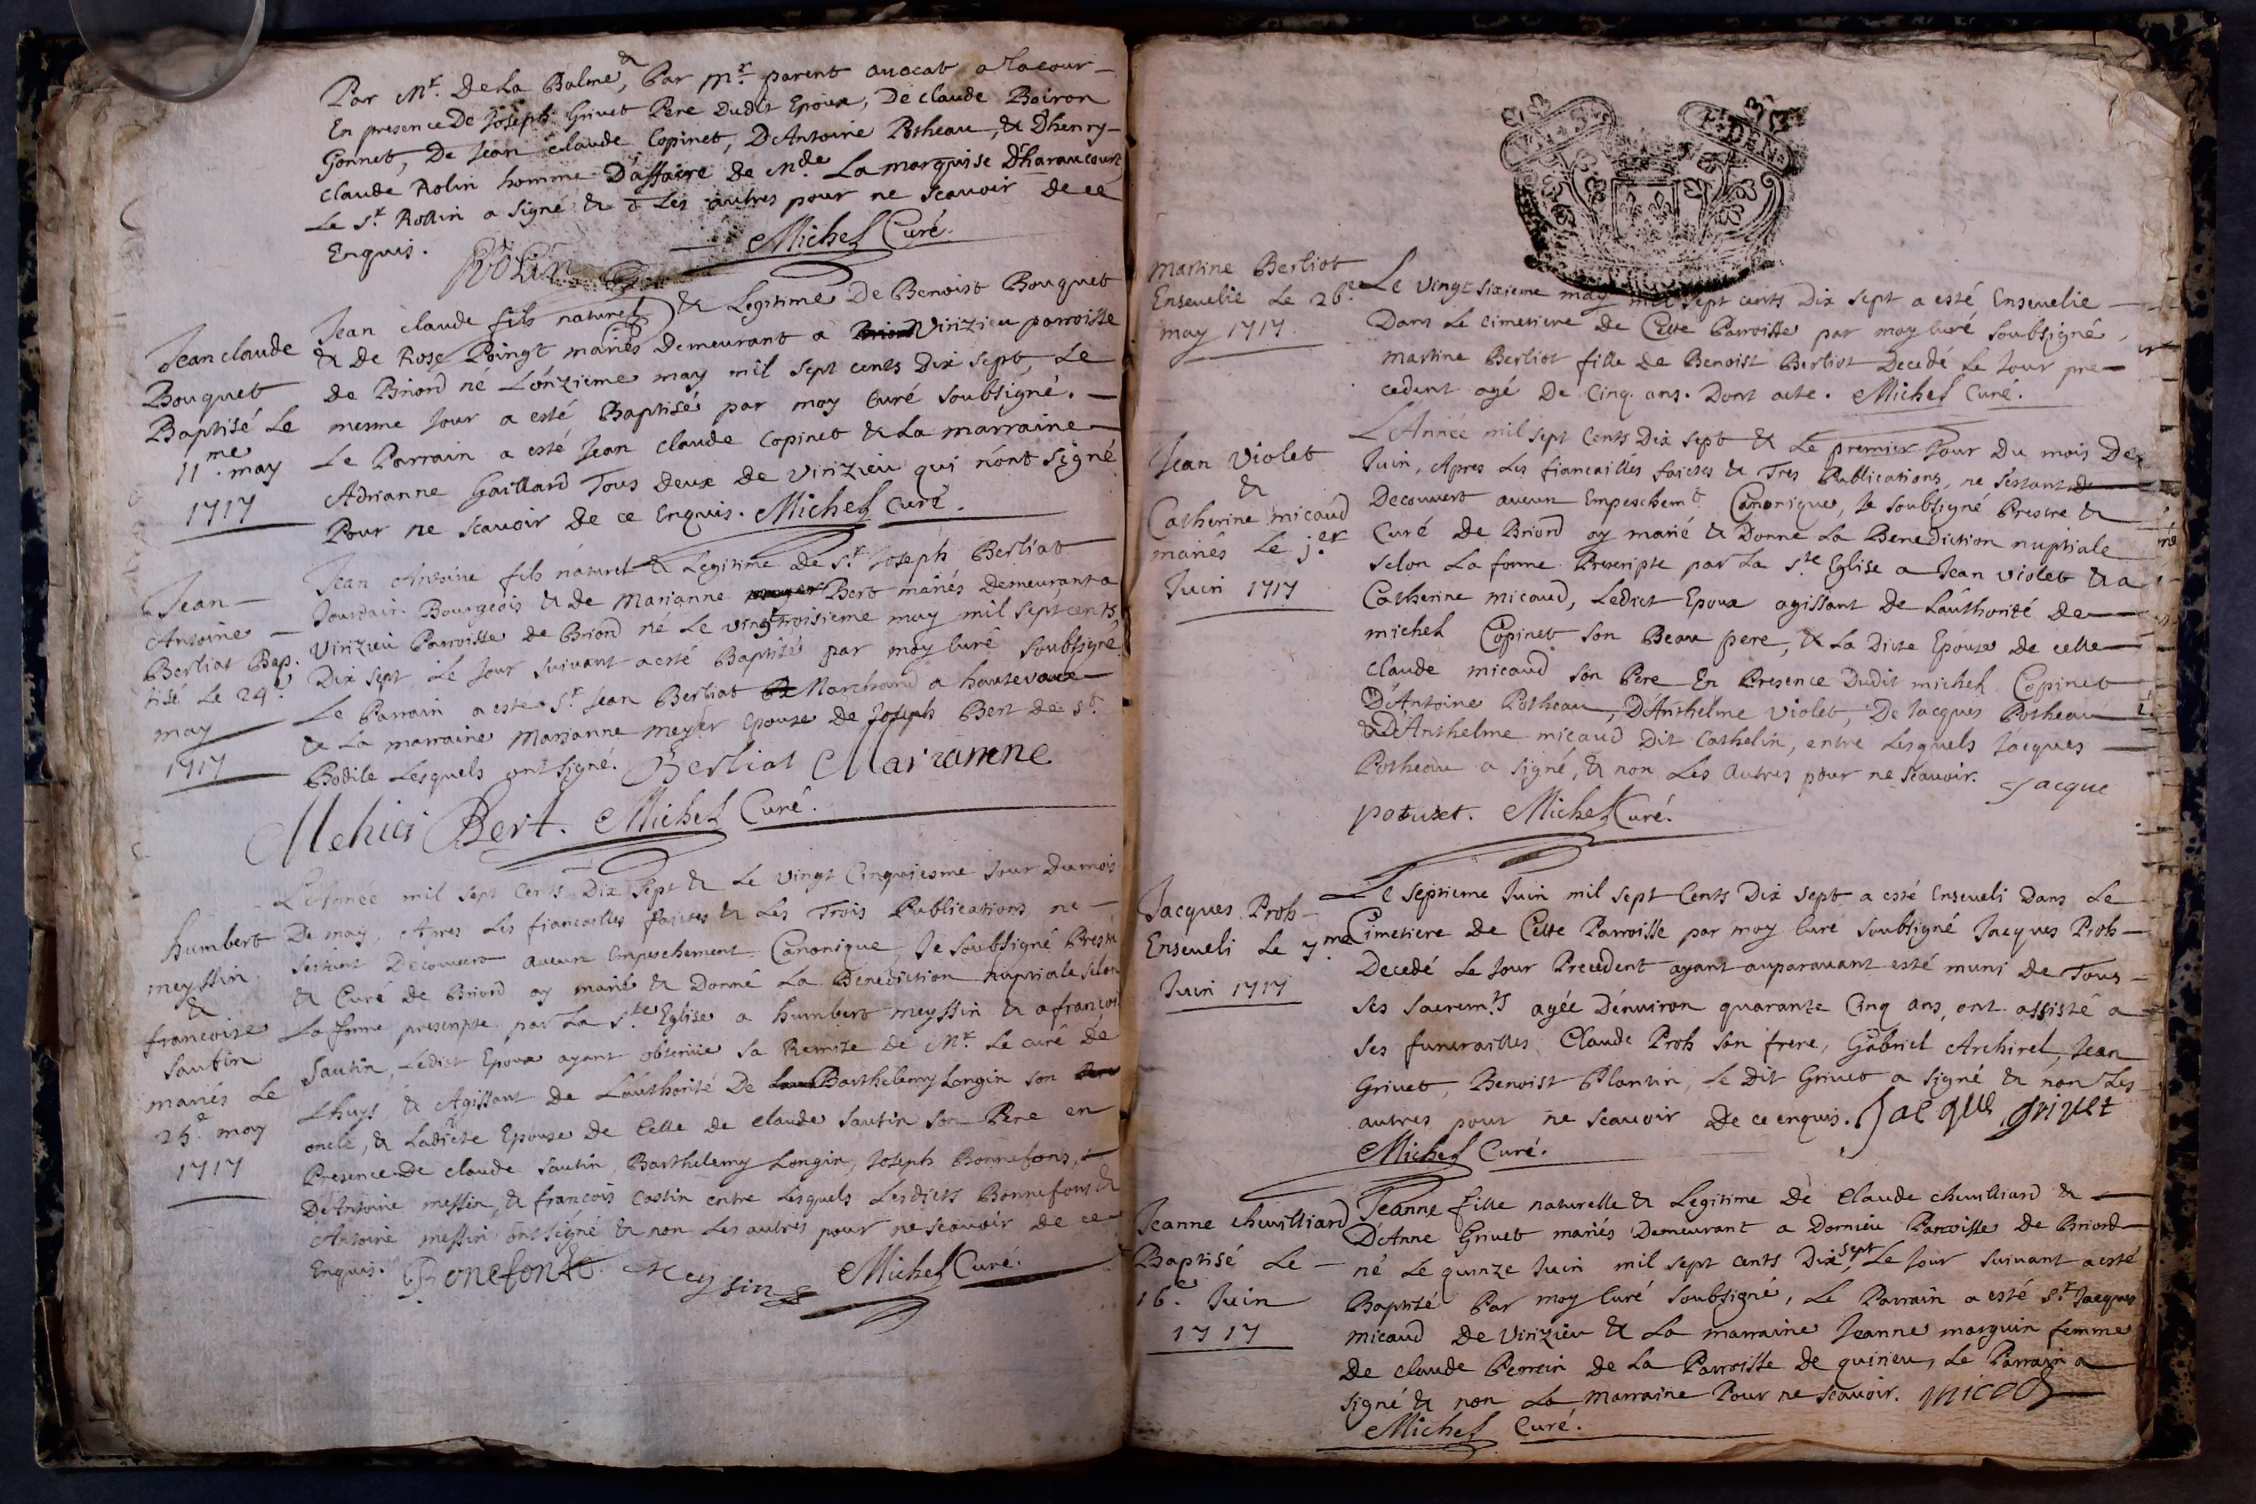 Par Mr. De La Balme, & Par Mr. parent avocat a la cour
En presence De Joseph Grivet Pere Dudit Epoux, De claude Boiron
Gonnet, De Jean claude Copinet, D'Antoine Potheau, & D'henry
claude Rolin homme D'affaire de Mde. La marquise D'haraucourt
Le Sr. Rollin a signé & Les autres pour ne scavoir de ce
Enquis. Rolin Michel Curé.
Jean claude
Bouquet
Baptisé Le
11me. may
1717
Jean claude fils naturel & Legitime De Benoist Bouquet
& de Rose Poingt mariés demeurant a Virizieu parroisse
de Briord né L'onzieme may mil sept cents Dix sept, Le
mesme Jour a esté Baptisé par moy Curé soubsigné.
Le Parrain a esté Jean claude Copinet & La marraine
Adrianne Gaillard Tous deux de Virizieu qui n'ont signé
Pour ne scavoir de ce Enquis. Michel Curé.
Jean
Antoine
Berliat Bap.
tisé Le 24e.
may
1717
Jean Antoine fils naturel & Legitime de Sr. Joseph Berliat
Jourdain Bourgeois & de Marianne Bert mariés Demeurant a
Virizieu Parroisse de Briord né Le vingt troisieme may mil sept cents
Dix sept Le Jour suivant a esté Baptisé par moy Curé soubsigné
Le Parrain a este Sr. Jean Berliat Marchand a hauteville
& La marraine Marianne meyer Epouse de Joseph Bert de St.
Bodile Lesquels ont signé. Berliat Marianne
Bert. Michel Curé.
humbert
meyssin
&
francoise
Sautin
mariés Le
25e. may
1717
L'Année mil sept cents Dix sept & Le vingt Cinquiesme Jour du mois
De may, Apres Les fiancailles faictes & Les Trois Publications ne
sestant Decouvert aucun Empeschement Canonique, Je soubsigné Prestre
& Curé de Briord ay marié & Donné La Benediction nuptiale selon
La forme prescripte par La Ste. Eglise a humbert meyssin & a francoise
Sautin, Ledict Epoux ayant obtenüe sa Remise de Mr. Le curé de
Lhuys & Agissant de L'authorité De Barthelemy Longin son
oncle, & Ladicte Epouse de Celle de claude Sautin son Pere en
Presence De claude Sautin, Barthelemy Longin, Joseph Bonnefons,
D'Antoine messin, & francois Costin entre Lesquels Lesdicts Bonnefons &
Antoine messin ont signé & non Les autres pour ne scavoir de ce
Enquis. Bonefont Meysin Michel Curé.
Martine Berliot
Ensevelie Le 26e.
may 1717
Le vingt sixieme may mil sept cents Dix sept a esté Ensevelie
Dans Le Cimetiere de Cette Parroisse par moy Curé soubsigné,
Martine Berliot fille de Benoist Berliot Decedé Le Jour pre
cedent agé De Cinq ans. Dont acte. Michel Curé.
Jean Violet
&
Catherine micaud
mariés Le j.er
Juin 1717
L'Année mil sept Cents Dix sept & Le premier Jour Du mois De
Juin, Apres Les fiancailles faictes & Tres Publications, ne sestant
Decouvert aucun Empeschemt. Canonique, Je soubsigné Prestre &
Curé de Briord ay marié & Donné La Benediction nuptiale
selon La forme Prescripte par La Ste. Eglise a Jean violet & a
Catherine micaud, Ledict Epoux agissant De L'authorité De
michel Copinet son Beau pere, & La Dicte Epouse de celle
claude micaud son Pere En Presence Dudit michel Copinet
D'Antoine Potheau, D'Anthelme violet, De Jacques Potheau
& D'Anthelme micaud Dit Cathelin, entre Lesquels Jacques
Potheau a signé, & non Les autres pour ne scavoir. Jacque
potuxet. Michel Curé.
Jacques Proh
Enseveli Le 7me.
Juin 1717
Le septieme Juin mil sept Cents Dix sept a esté Enseveli Dans Le
Cimetiere de Cette Parroisse par moy Curé soubsigné Jacques Proh
Decedé Le Jour Precedent ayant auparavant esté muni de Tous
ses sacremts. agée D'environ quarante Cinq ans, ont assisté a
ses funerailles, Claude Proh son frere, Gabriel Archirel, Jean
Grivet, Benoist Plantin, Le Dit Grivet a signé & non Les
autres pour ne scavoir De ce enquis. Jacque grivet
Michel Curé.
Jeanne chevilliard
Baptisé Le
16e. Juin
1717
Jeanne fille naturelle & Legitime De Claude chevilliard &
D'Anne Grivet mariés Demeurant a Dornieu Parroisse de Briord
né Le quinze Juin mil sept cents Dix sept, Le Jour suivant a esté
Baptisé Par moy Curé soubsigné, Le Parrain a esté Sr. Jacques
micaud De Virizieu & La marraine Jeanne marguin femme
De claude Perrein de La Parroisse de quirieu, Le Parrain a
signé & non La marraine Pour ne scavoir. micod
Michel Curé.